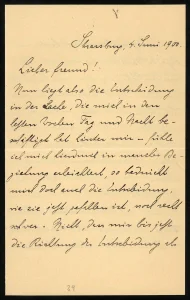 Strassburg, 4. Juni 1900
Lieber Freund!
Nun liegt also die Entscheidung
in der Sache, die mich in den
letzten Wochen Tag und Nacht be-
schäftigt hat hinter mir – fühle
ich mich hiedurch in mancher Be-
ziehung erleichtert, so bedrückt
mich doch auch die Entscheidung,
wie sie jetzt gefallen ist, noch recht
schwer. Nicht, dass mir bis jetzt
die Richtung der Entscheidung als
29